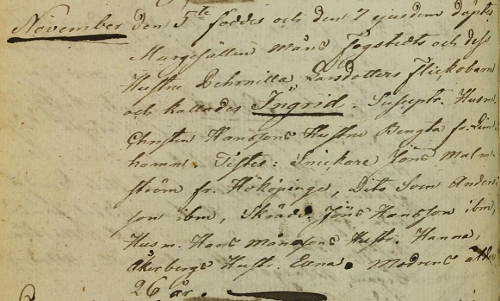 November den 5te föddes och den 7 ejusdem döpt.
Murgesällen Måns Fogstedts och dess
Hustru Pehrnilla Larsdotters Flickobarn
och kallades Ingrid. Susceptr. Husm.
Christen Hanssons Hustru Bengta fr.
hamm. Testes: Snickare Jöns Malm-
ström fr. Hököpinge, Dito Sven Anders-
son ibm, Skrädd. Jöns Hansson ibm,
Husm. Hans Månssons Hustr. Hanna,
Åkerbergs Hustr. Elena. Modrens ålder
26 år.